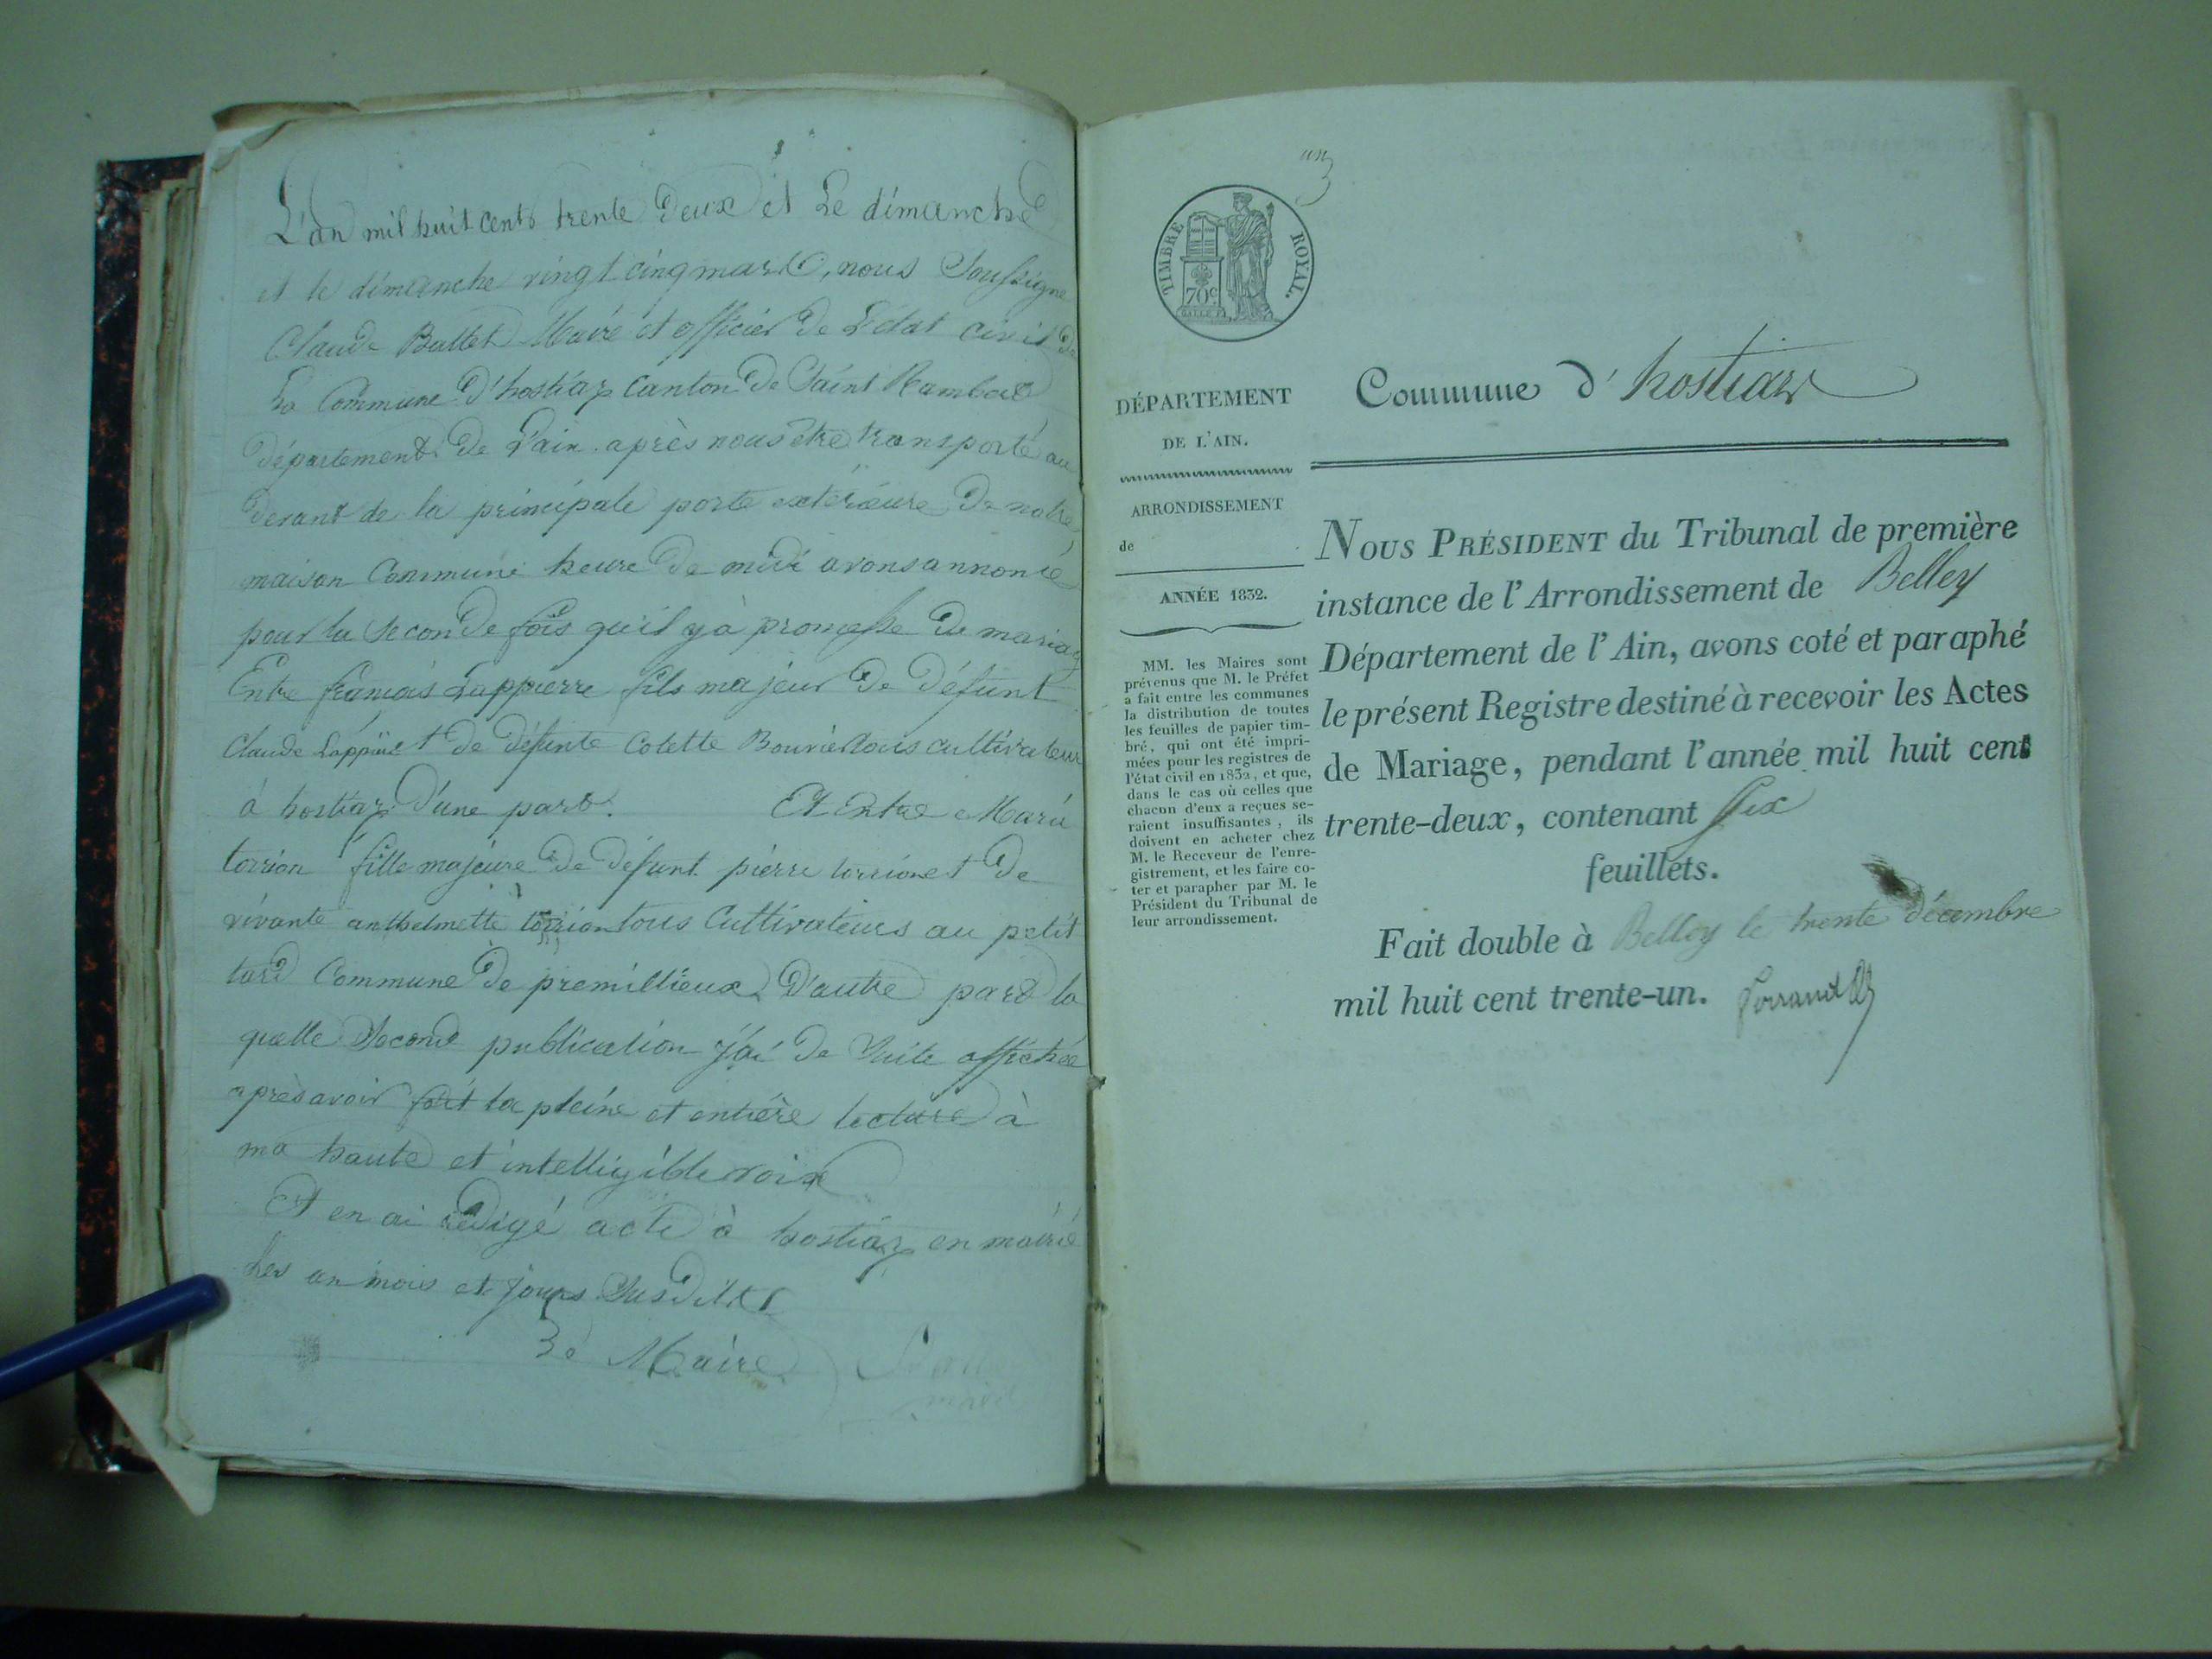 L'an mil huit cents trente deux et Le dimanche
et le dimanche vingt cinq mars, nous Soussigné
Claude Ballet Maire et officier de L'état civil de
La Commune d'hostiaz Canton de Saint Rambert
département de L'ain. après nous être transporté au
devant de la principale porte extérieure De notre
maison Commune heure de midi avons annoncé
pour la Seconde fois qu'il y à promesse de mariage
Entre françois Lappierre fils majeur De défunt
Claude Lappierre et De défunte Colette Bouvier tous cultivateur
à hostiaz D'une part. Et Entre Marie
torrion fille majeure De défunt pierre torrion et De
vivante anthelmette torrion tous Cultivateurs au petit
Commune De premillieux D'autre part la
quelle Second publication J'ai De Suite affichée
après avoir fait la pleine et entière lecture à
ma haute et intelligible voix
Et en ai rédigé acte à hostiaz en mairie
Les an mois et jours Susdits
Maire
un
TIMBRE ROYAL.
70 c
DÉPARTEMENT
DE L'AIN.
ARRONDISSEMENT
de
ANNÉE 1832.
MM. les Maires sont
prévenus que M. le Préfet
a fait entre les communes
la distribution de toutes
les feuilles de papier tim-
bré, qui ont été impri-
mées pour les registres de
l'état civil en 1832, et que,
dans le cas où celles que
chacun d'eux a reçues se-
raient insuffisantes, ils
doivent en acheter chez
M. le Receveur de l'enre-
gistrement, et les faire co-
ter et parapher par M. le
Président du Tribunal de
leur arrondissement.
Commune d'hostiaz
NOUS PRÉSIDENT du Tribunal de première
instance de l'Arrondissement de Belley
Département de l'Ain, avons coté et paraphé
le présent Registre destiné à recevoir les Actes
de Mariage, pendant l'année mil huit cent
trente-deux, contenant Six
feuillets.
Fait double à Belley le trente décembre
mil huit cent trente-un.